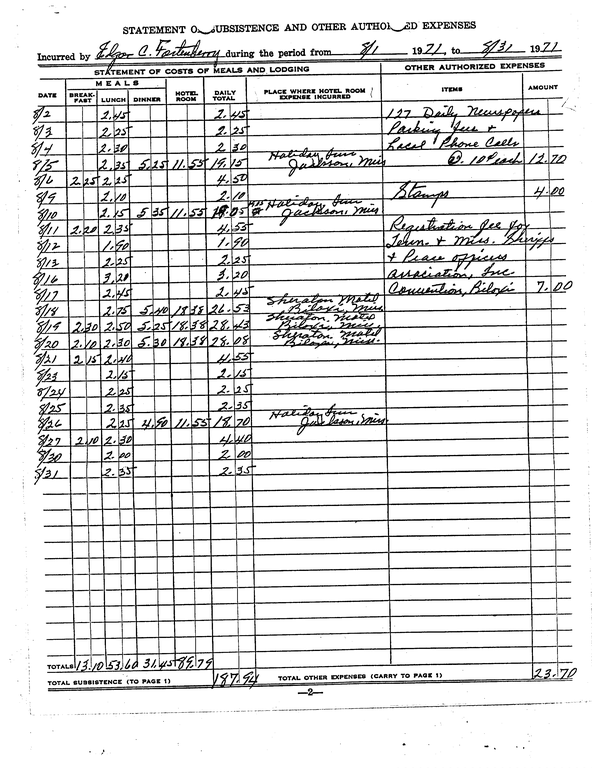 STATEMENT OF SUBSISTENCE AND OTHER AUTHORIZED EXPENSES
Incurred by Edgar C. Fortenberry during the period from 8/1 1971, to 8/31 1971
STATEMENT OF COSTS OF MEALS AND LODGING OTHER AUTHORIZED EXPENSES
MEALS
DATE BREAK-FAST LUNCH DINNER HOTEL ROOM DAILY TOTAL PLACE WHERE HOTEL ROOM EXPENSE INCURRED ITEMS AMOUNT
8/2 2.45 2.45 127 Daily Newspapers
8/3 2.25 2.25 Parking fees &
8/4 2.30 2.30 Local Phone Calls
8/5 2.35 5.25 11.55 19.15 Holiday Inn Jackson, Miss @ 10¢ each 12.70
8/6 2.25 2.25 4.50
8/9 2.10 2.10 Stamps 4.00
8/10 2.15 5.35 11.55 19.05 Holiday Inn Jackson, Miss
8/11 2.20 2.35 4.55 Registration fee for
8/12 1.90 1.90 Tenn. & Miss. Sheriffs
8/13 2.25 2.25 & Peace officers
8/16 3.20 3.20 association, Inc
8/17 2.45 2.45 Convention, Biloxi 7.00
8/18 2.75 5.40 18.38 26.53 Sheraton Motel Biloxi, Miss
8/19 2.30 2.50 5.25 18.38 28.43 Sheraton Motel Biloxi, Miss
8/20 2.10 2.30 5.30 18.38 28.08 Sheraton Motel Biloxi, Miss.
8/21 2.15 2.40 4.55
8/23 2.15 2.15
8/24 2.25 2.25
8/25 2.35 2.35
8/26 2.25 4.90 11.55 18.70 Holiday Inn Jackson, Miss.
8/27 2.10 2.30 4.40
8/30 2.00 2.00
8/31 2.35 2.35
TOTALS 13.10 53.60 31.45 89.79
TOTAL SUBSISTENCE (TO PAGE 1) 187.94 TOTAL OTHER EXPENSES (CARRY TO PAGE 1) 23.70
—2—